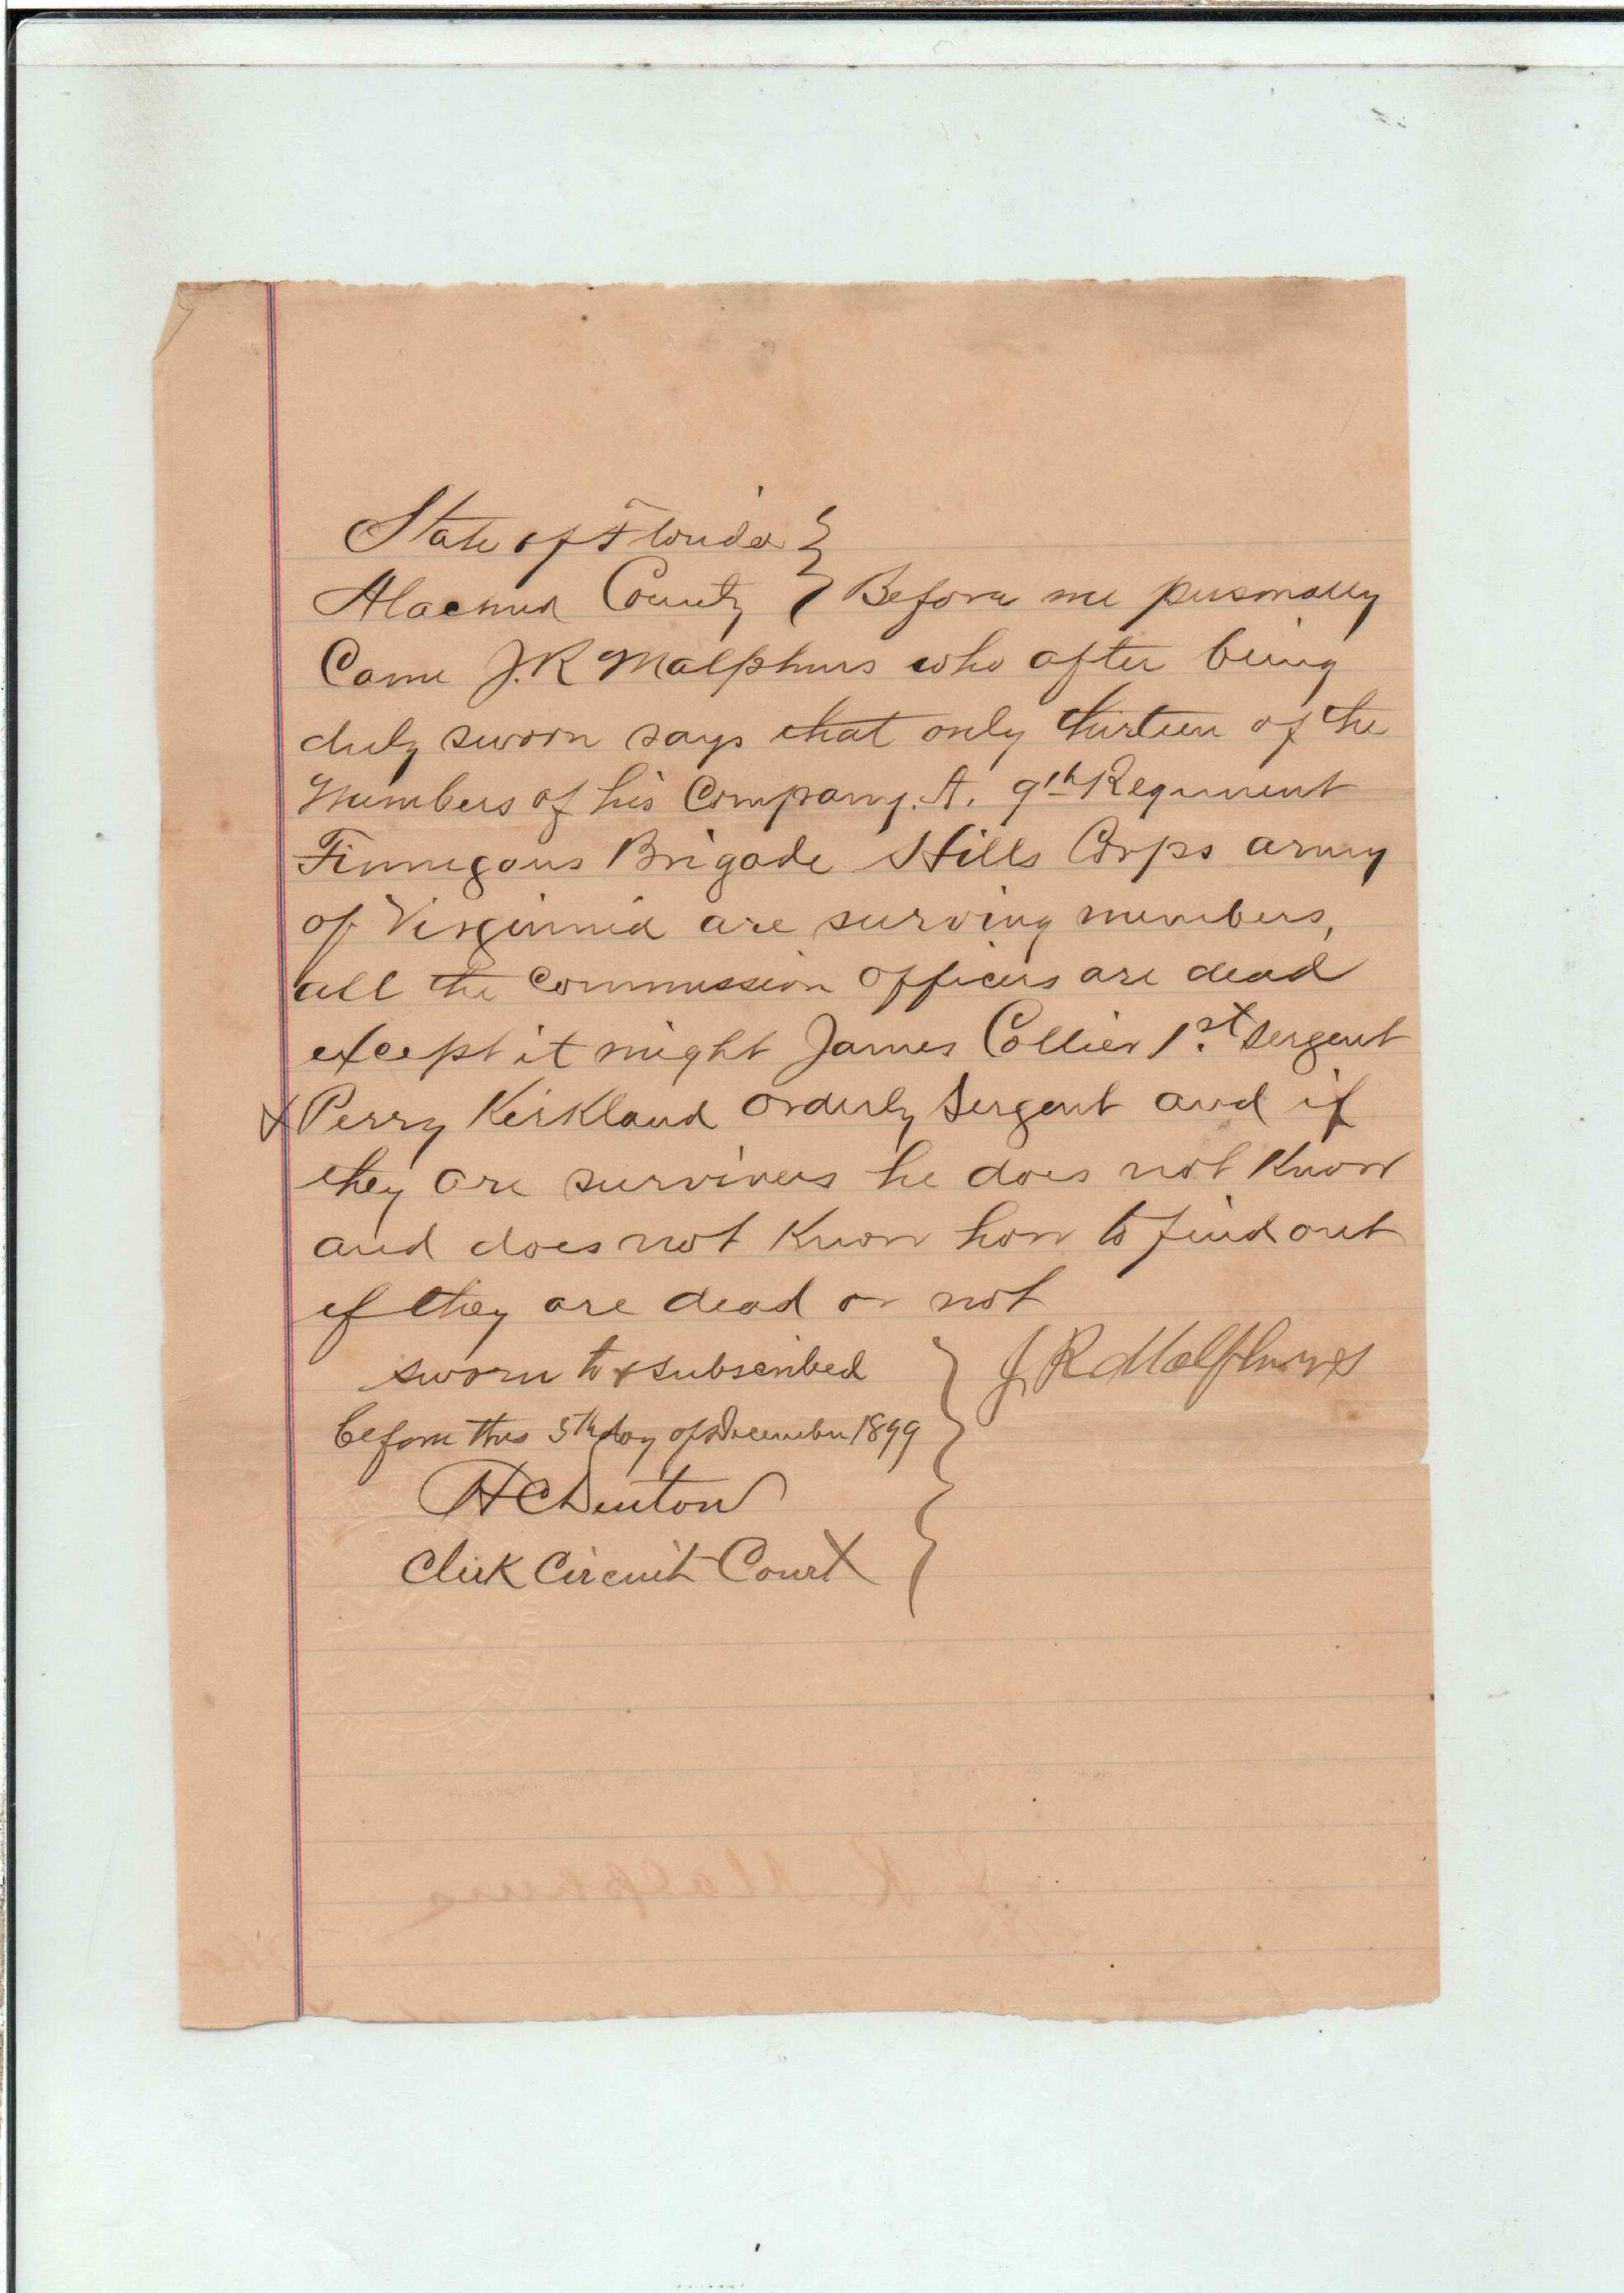 State of Florida }
Alachua County } Before me personally
Came J.R Malphurs who after being
duly sworn says that only thirteen of the
members of his Company. A. 9th Regiment
Finnegans Brigade Hills Corps army
of Virginnia are surving members,
all the commission officers are dead
except it might James Collier 1st Sergent
& Perry Kirkland Orderly Sergent and if
they are survivers he does not Know
and does not Know how to find out
if they are dead or not
sworn to & subscribed } J R Malphurs
before this 5th day of December 1899
H C Denton
Clerk Circuit Court
J. R Malphurs